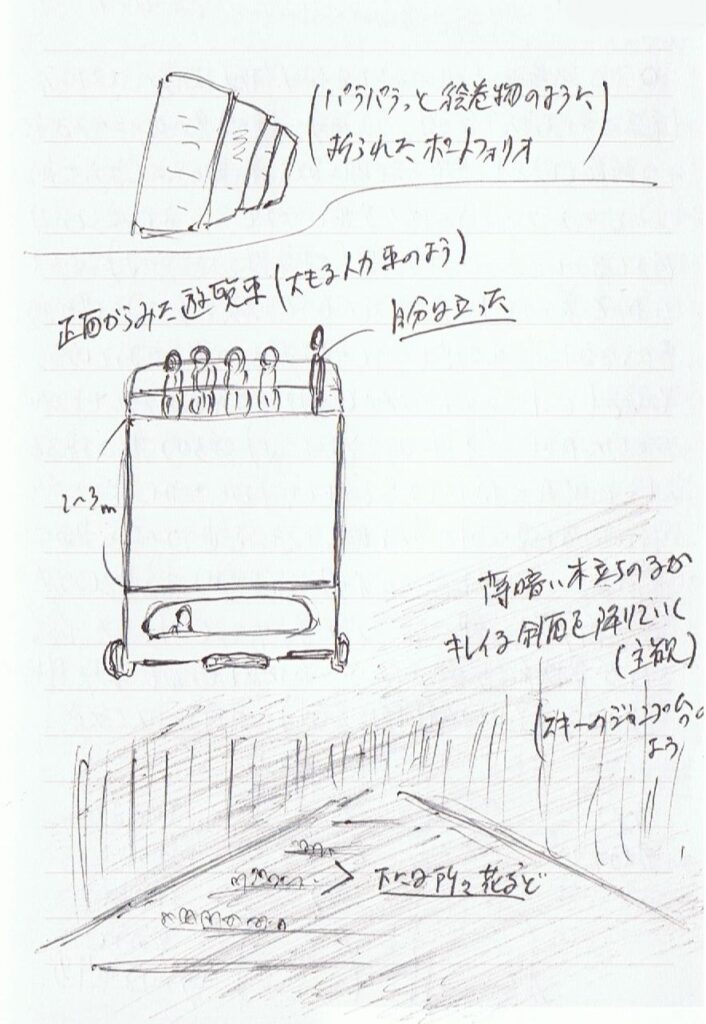 (パラパラっと絵巻物のように
折られたポートフォリオ)
正面からみた遊覧車(大きな人力車のよう)
自分は立った
2~3m
薄暗い木立ちのなか
キレイな斜面を降りていく
(主観)
(スキーのジャンプ台の
よう
下には所々花など